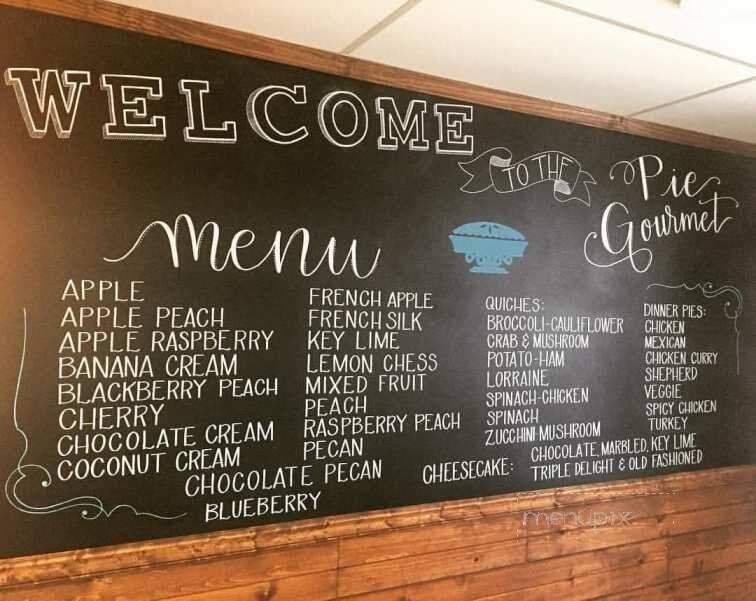 WELCOME
TO THE
Pie
Gourmet
menu
APPLE
APPLE PEACH
APPLE RASPBERRY
BANANA CREAM
BLACKBERRY PEACH
CHERRY
CHOCOLATE CREAM
COCONUT CREAM
FRENCH APPLE
FRENCH SILK
KEY LIME
LEMON CHESS
MIXED FRUIT
PEACH
RASPBERRY PEACH
PECAN
CHOCOLATE PECAN
BLUEBERRY
QUICHES:
BROCCOLI-CAULIFLOWER
CRAB & MUSHROOM
POTATO-HAM
LORRAINE
SPINACH-CHICKEN
SPINACH
ZUCCHINI-MUSHROOM
DINNER PIES:
CHICKEN
MEXICAN
CHICKEN CURRY
SHEPHERD
VEGGIE
SPICY CHICKEN
TURKEY
CHEESECAKE: CHOCOLATE, MARBLED, KEY LIME
TRIPLE DELIGHT & OLD FASHIONED
menupix